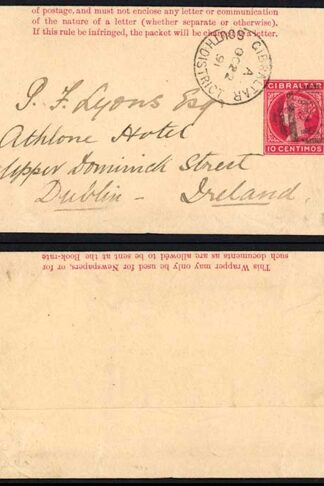 of postage, and must not enclose any letter or communication
of the nature of a letter (whether separate or otherwise).
If this rule be infringed, the packet will be charged as a letter.
GIBRALTAR (SOUTH DISTRICT)
A
OC 22
91
GIBRALTAR
10 CENTIMOS
P. F. Lyons Esq
Athlone Hotel
Upper Dominick Street
Dublin – Ireland
This Wrapper may only be used for Newspapers, or for
such documents as are allowed to be sent at the Book-rate